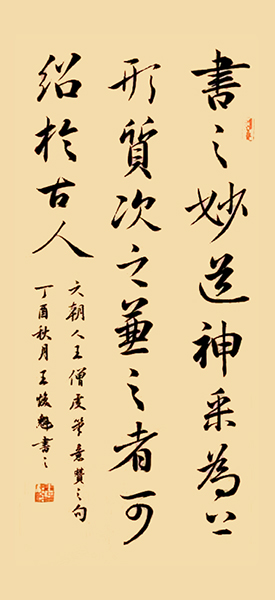 書之妙道神采為上
形質次之兼之者可
紹於古人
六朝人王僧虔筆意贊之句
丁酉秋月王俊魁書之